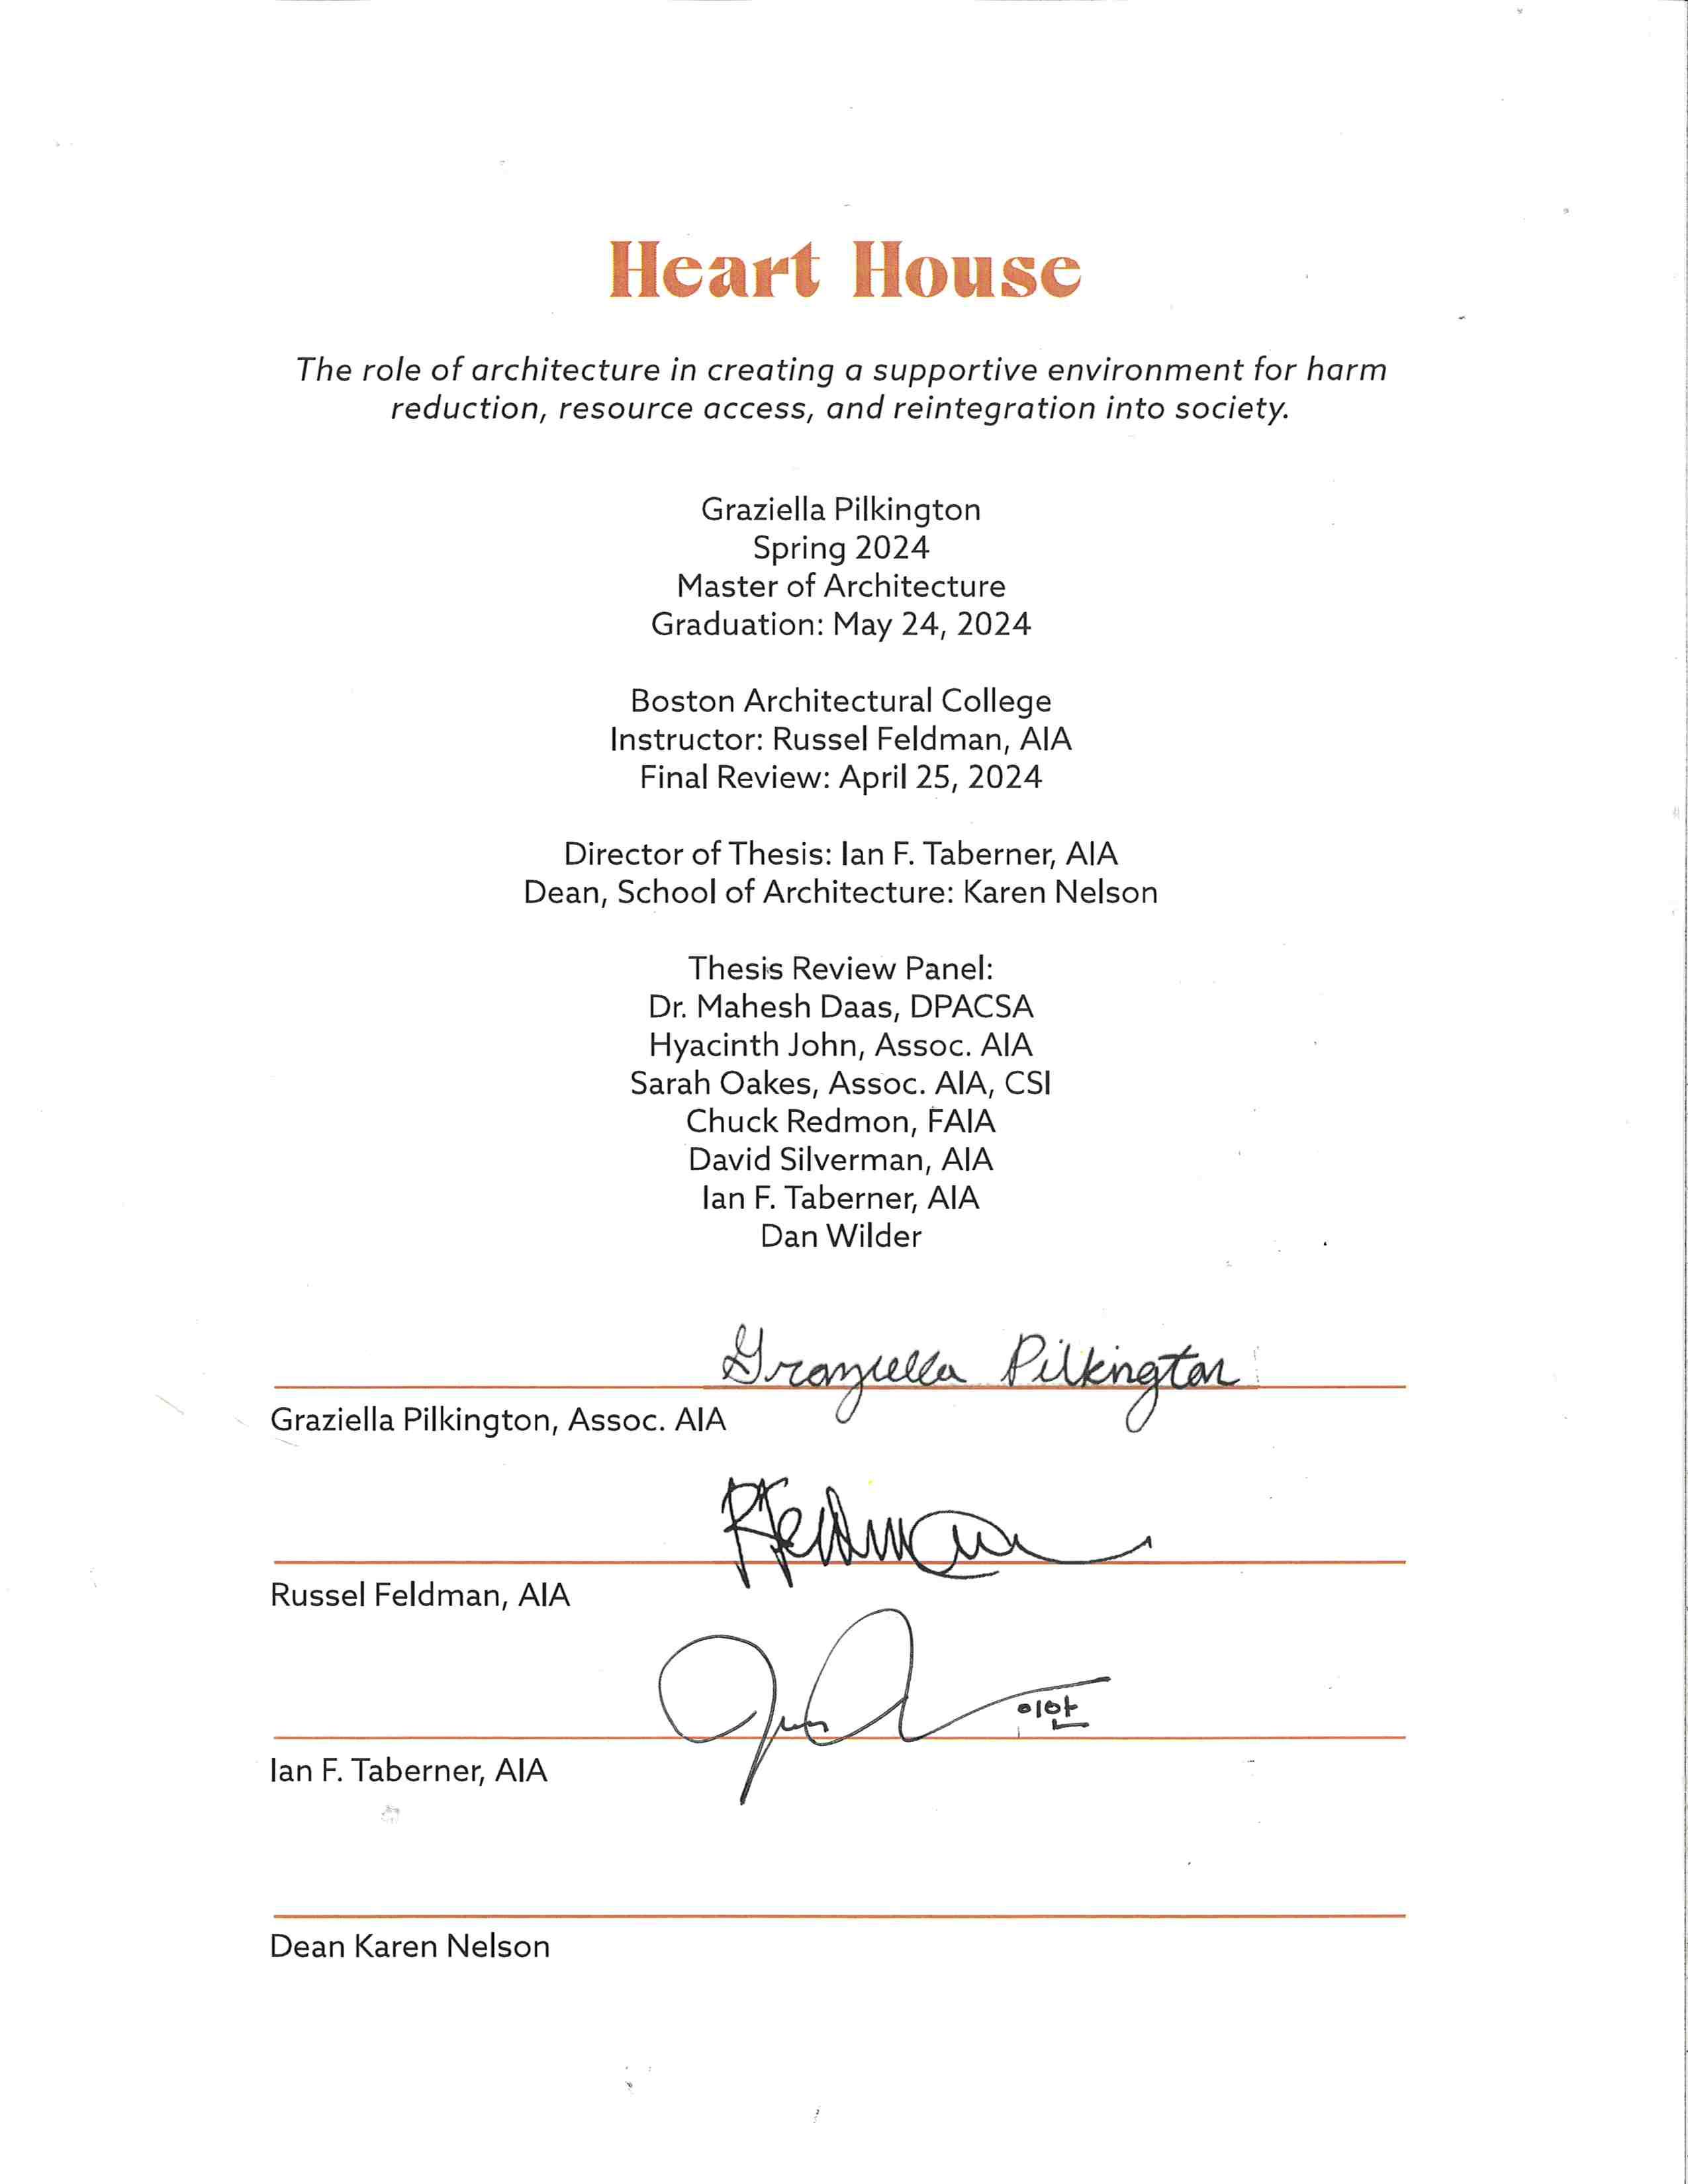 Heart House
The role of architecture in creating a supportive environment for harm
reduction, resource access, and reintegration into society.
Graziella Pilkington
Spring 2024
Master of Architecture
Graduation: May 24, 2024
Boston Architectural College
Instructor: Russel Feldman, AIA
Final Review: April 25, 2024
Director of Thesis: Ian F. Taberner, AIA
Dean, School of Architecture: Karen Nelson
Thesis Review Panel:
Dr. Mahesh Daas, DPACSA
Hyacinth John, Assoc. AIA
Sarah Oakes, Assoc. AIA, CSI
Chuck Redmon, FAIA
David Silverman, AIA
Ian F. Taberner, AIA
Dan Wilder
Graziella Pilkington
Graziella Pilkington, Assoc. AIA
RFeldman
Russel Feldman, AIA
이안
Ian F. Taberner, AIA
Dean Karen Nelson